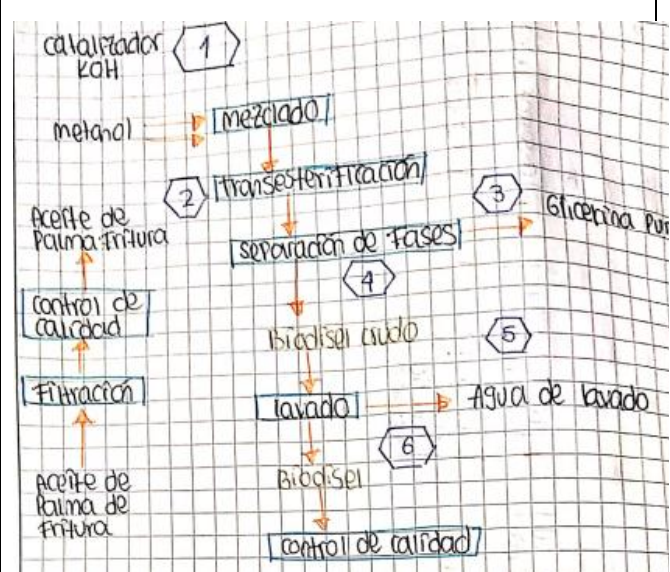 catalizador
KOH
1
metanol
mezclado
2
transesterificación
3
Aceite de
Palma fritura
separación de Fases
Glicerina Pur
4
control de
calidad
Biodisel crudo
5
Filtración
lavado
Agua de lavado
6
Aceite de
Palma de
Fritura
Biodisel
control de calidad